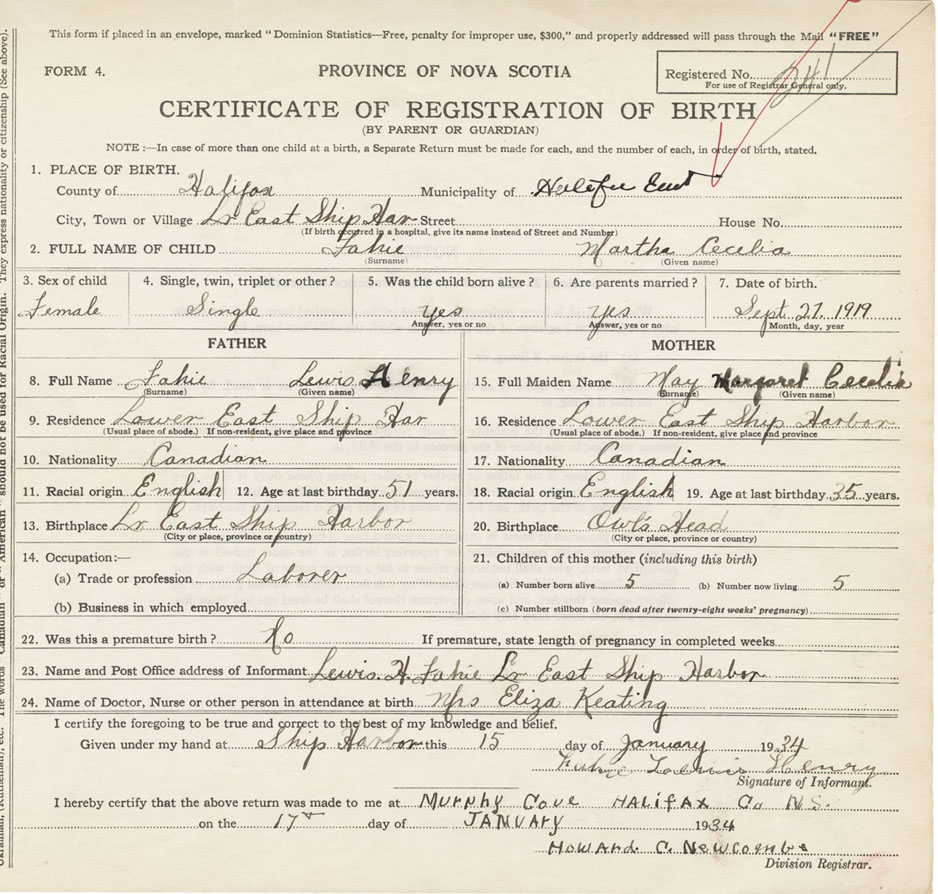 This form if placed in an envelope, marked "Dominion Statistics—Free, penalty for improper use, $300," and properly addressed will pass through the Mail "FREE"
FORM 4.
PROVINCE OF NOVA SCOTIA
Registered No. 241
For use of Registrar General only.
CERTIFICATE OF REGISTRATION OF BIRTH
(BY PARENT OR GUARDIAN)
NOTE :—In case of more than one child at a birth, a Separate Return must be made for each, and the number of each, in order of birth, stated.
1. PLACE OF BIRTH.
County of Halifax Municipality of Halifax East
City, Town or Village Lr East Ship Har Street House No.
(If birth occurred in a hospital, give its name instead of Street and Number)
2. FULL NAME OF CHILD Fahie Martha Cecelia
(Surname) (Given name)
3. Sex of child 4. Single, twin, triplet or other ? 5. Was the child born alive ? 6. Are parents married ? 7. Date of birth.
Female Single yes yes Sept 27 1919
Answer, yes or no Answer, yes or no Month, day, year
FATHER
8. Full Name Fahie Lewis Henry
(Surname) (Given name)
9. Residence Lower East Ship Har
(Usual place of abode.) If non-resident, give place and province
10. Nationality Canadian
11. Racial origin English 12. Age at last birthday 51 years.
13. Birthplace Lr East Ship Harbor
(City or place, province or country)
14. Occupation:—
(a) Trade or profession Laborer
(b) Business in which employed
MOTHER
15. Full Maiden Name May Margaret Cecelia
(Surname) (Given name)
16. Residence Lower East Ship Harbor
(Usual place of abode.) If non-resident, give place and province
17. Nationality Canadian
18. Racial origin English 19. Age at last birthday 35 years.
20. Birthplace Owls Head
(City or place, province or country)
21. Children of this mother (including this birth)
(a) Number born alive 5 (b) Number now living 5
(c) Number stillborn (born dead after twenty-eight weeks' pregnancy)
22. Was this a premature birth ? No If premature, state length of pregnancy in completed weeks
23. Name and Post Office address of Informant Lewis. H. Fahie Lr East Ship Harbor
24. Name of Doctor, Nurse or other person in attendance at birth Mrs Eliza Keating
I certify the foregoing to be true and correct to the best of my knowledge and belief.
Given under my hand at Ship Harbor this 15 day of January 1934
Fahie Lewis Henry
Signature of Informant.
I hereby certify that the above return was made to me at Murphy Cove HALIFAX Co N.S.
on the 17 day of JANUARY 1934
HOWARD C. NEWCOMBE
Division Registrar.